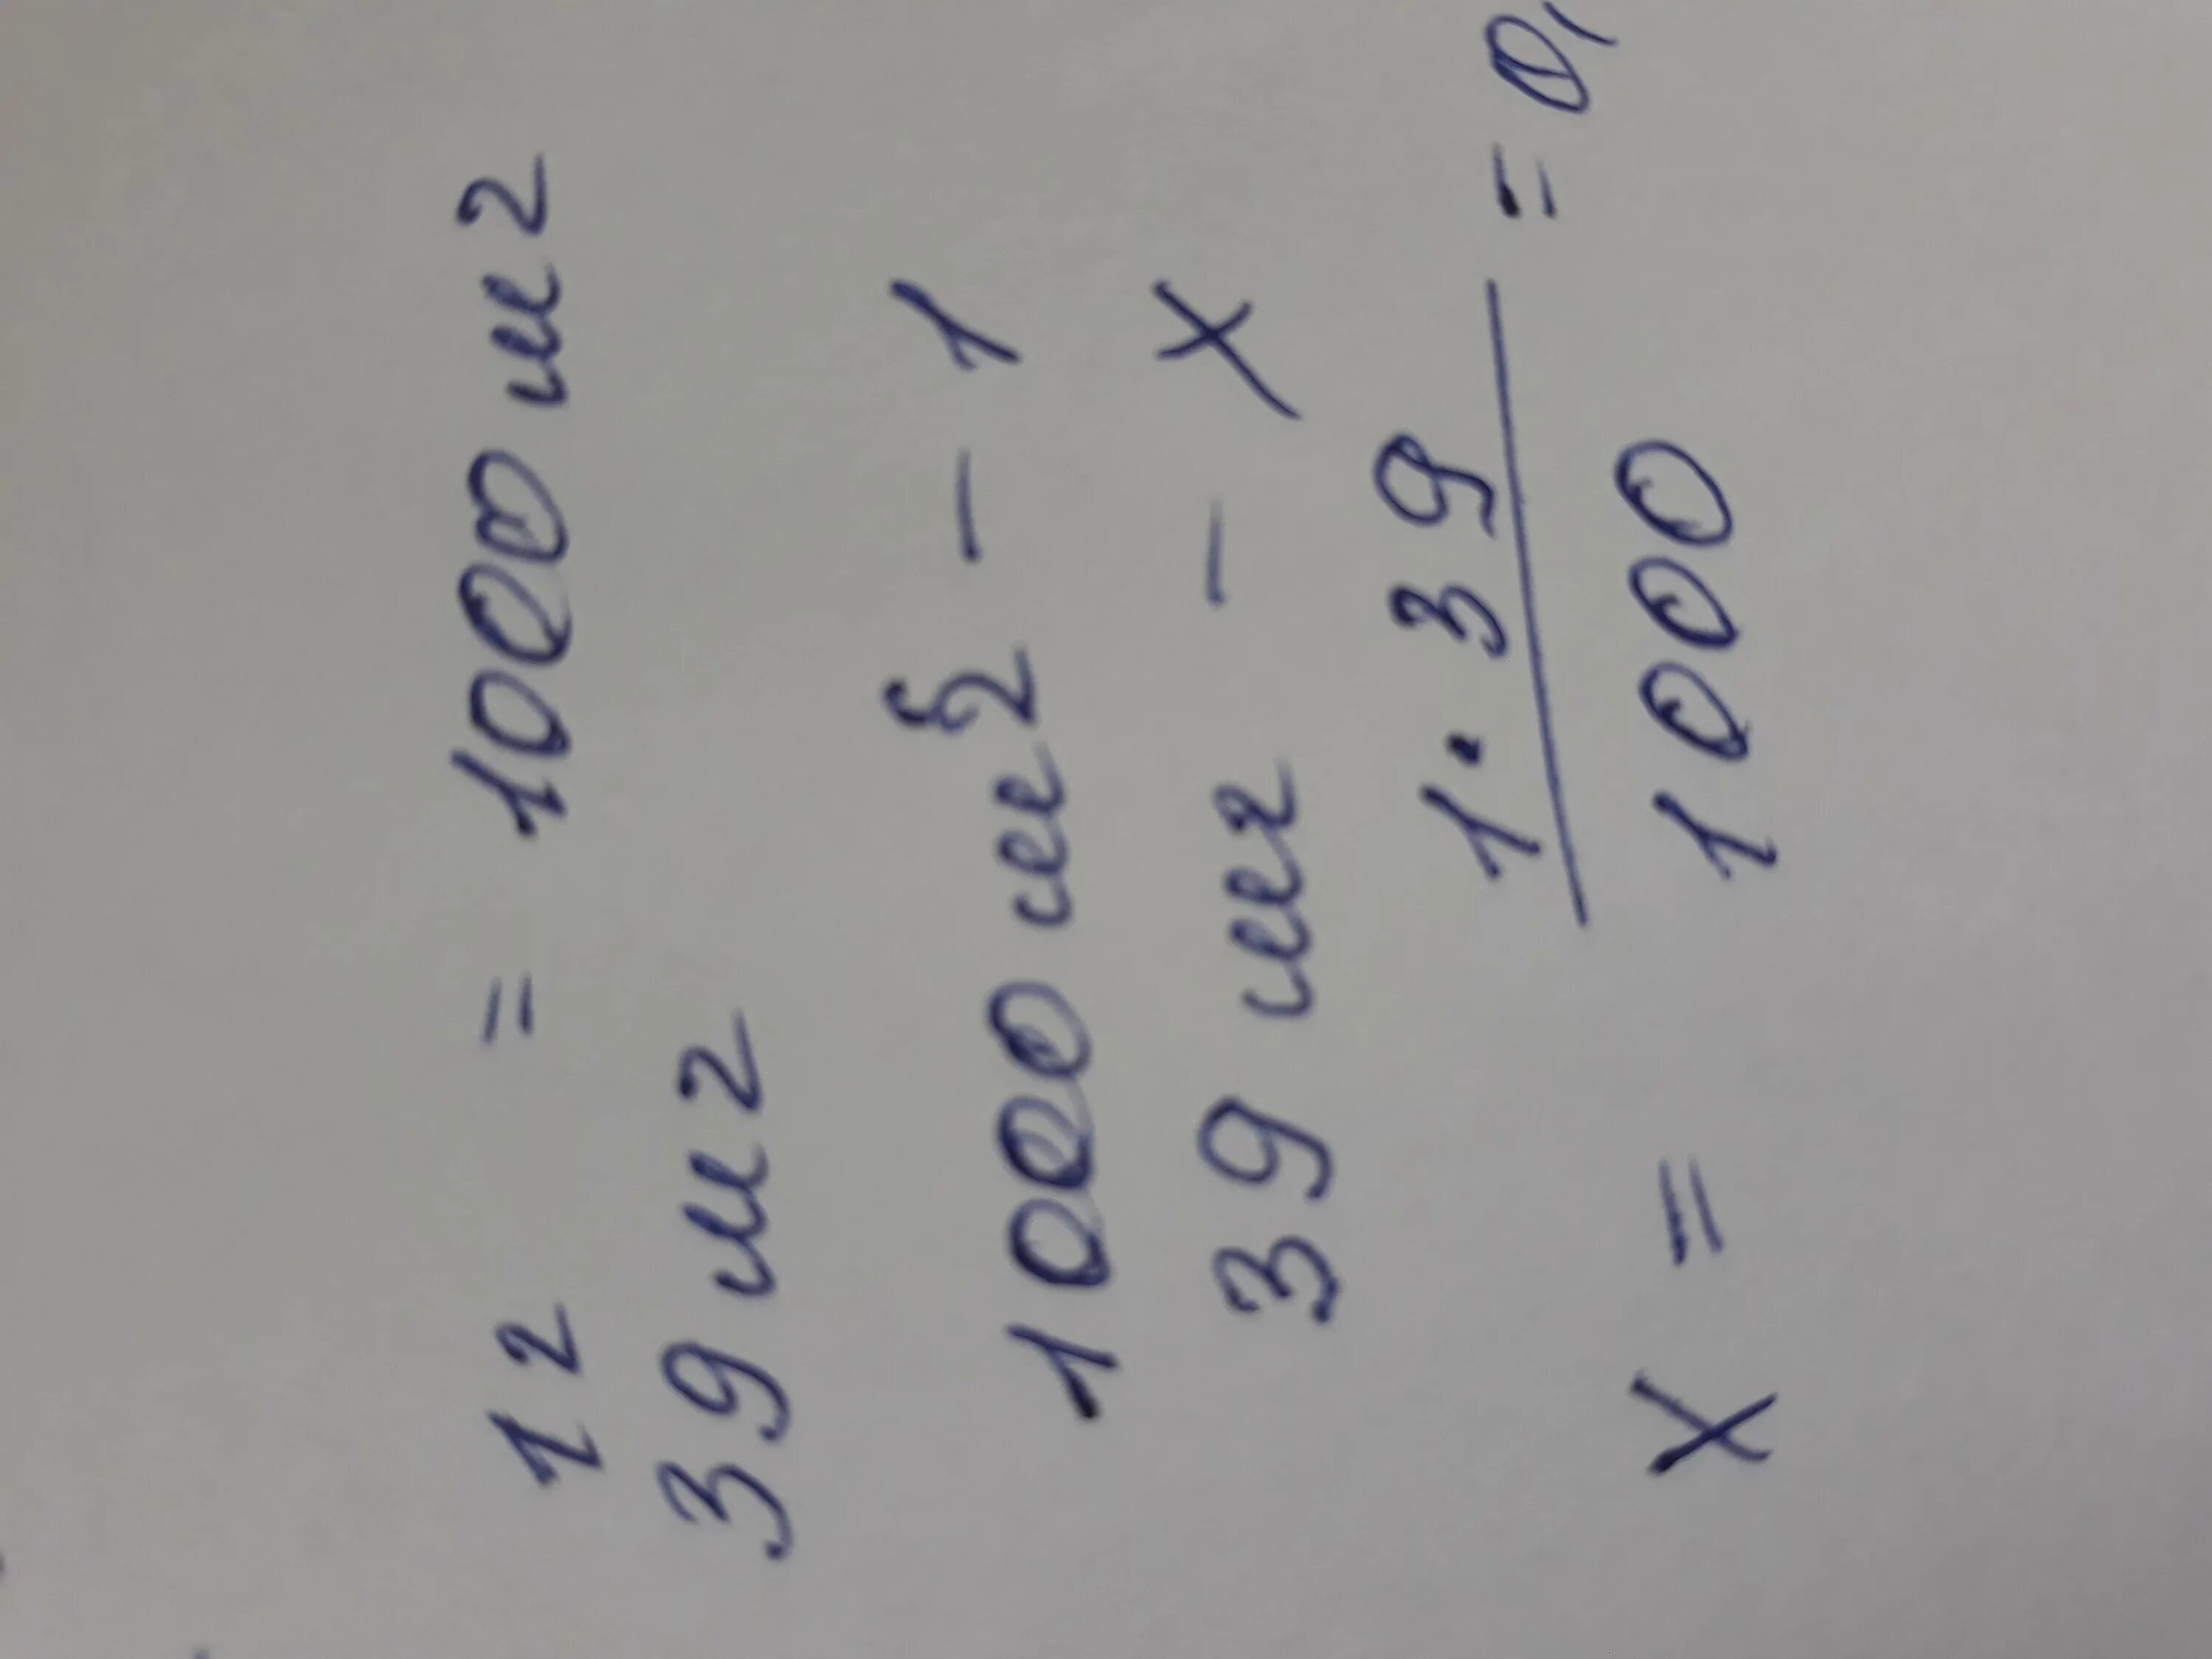 1 г = 1000 мг
39 мг
1000 мг - 1
39 мг - х
х = 1 · 39 / 1000 = 0,